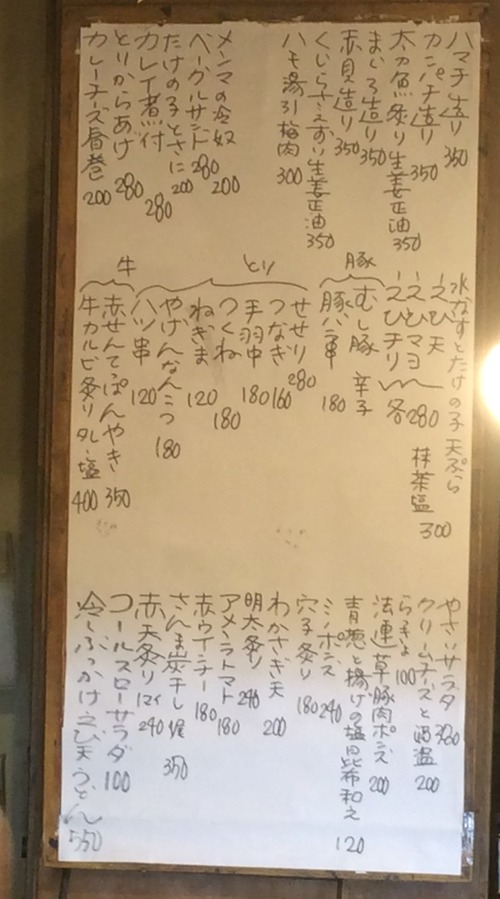 ハマチ造り 350
カンパチ造り 350
太刀魚炙り生姜正油 350
まぐろ造り 350
赤貝造り 350
くじらさえずり生姜正油 350
ハモ湯引梅肉 300
メンマの冷奴 200
ベーグルサンド 280
たけの子とさに 200
カレイ煮付 280
とりからあげ 280
カレーチーズ春巻 200
水なすとたけの子天ぷら 抹茶塩 300
えび天
えびマヨ
えびチリ 各 280
豚
むし豚 辛子
豚バラ串 180
とり
せせり 280
つなぎ 160
手羽中 180
つくね 180
ねぎま 120
やげんなんこつ 180
ハツ串 120
牛
赤せんてっぽんやき 350
牛カルビ炙りタレ・塩 400
やさいサラダ 380
クリームチーズと酒盗 200
らっきょ 100
法連草豚肉ポンズ 200
青葱と揚げの塩昆布和え 120
ミノポンズ 240
穴子炙り 180
わかさぎ天 200
明太炙り 240
アメーラトマト 180
赤ウインナー 180
さんま炭干し 350
赤天炙り マイ 240
コールスローサラダ 100
冷しぶっかけえび天うどん 550